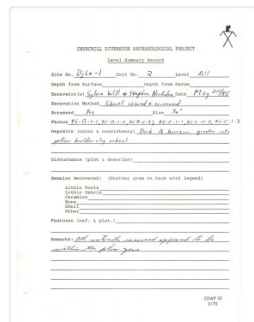 CHURCHILL DIVERSION ARCHAEOLOGICAL PROJECT
Level Summary Record
Site No. DjLa-1 Unit No. 2 Level All
Depth from Surface Depth from Datum
Excavator(s) Sylvia Date May 20/85
Excavation Method Shovel shaved & screened
Screened Yes Size
Photos
Deposits (color & consistency) Dark to brown grades into
yellow boulder clay subsoil
Disturbance (plot & describe)
Remains Recovered: (Scatter gram on back with legend)
Lithic Tools
Lithic Debris
Ceramics
Bone
Shell
Other
Features (ref. & plot.)
Remarks: All materials removed appeared to be
within the plow zone
CDAP III
5/75